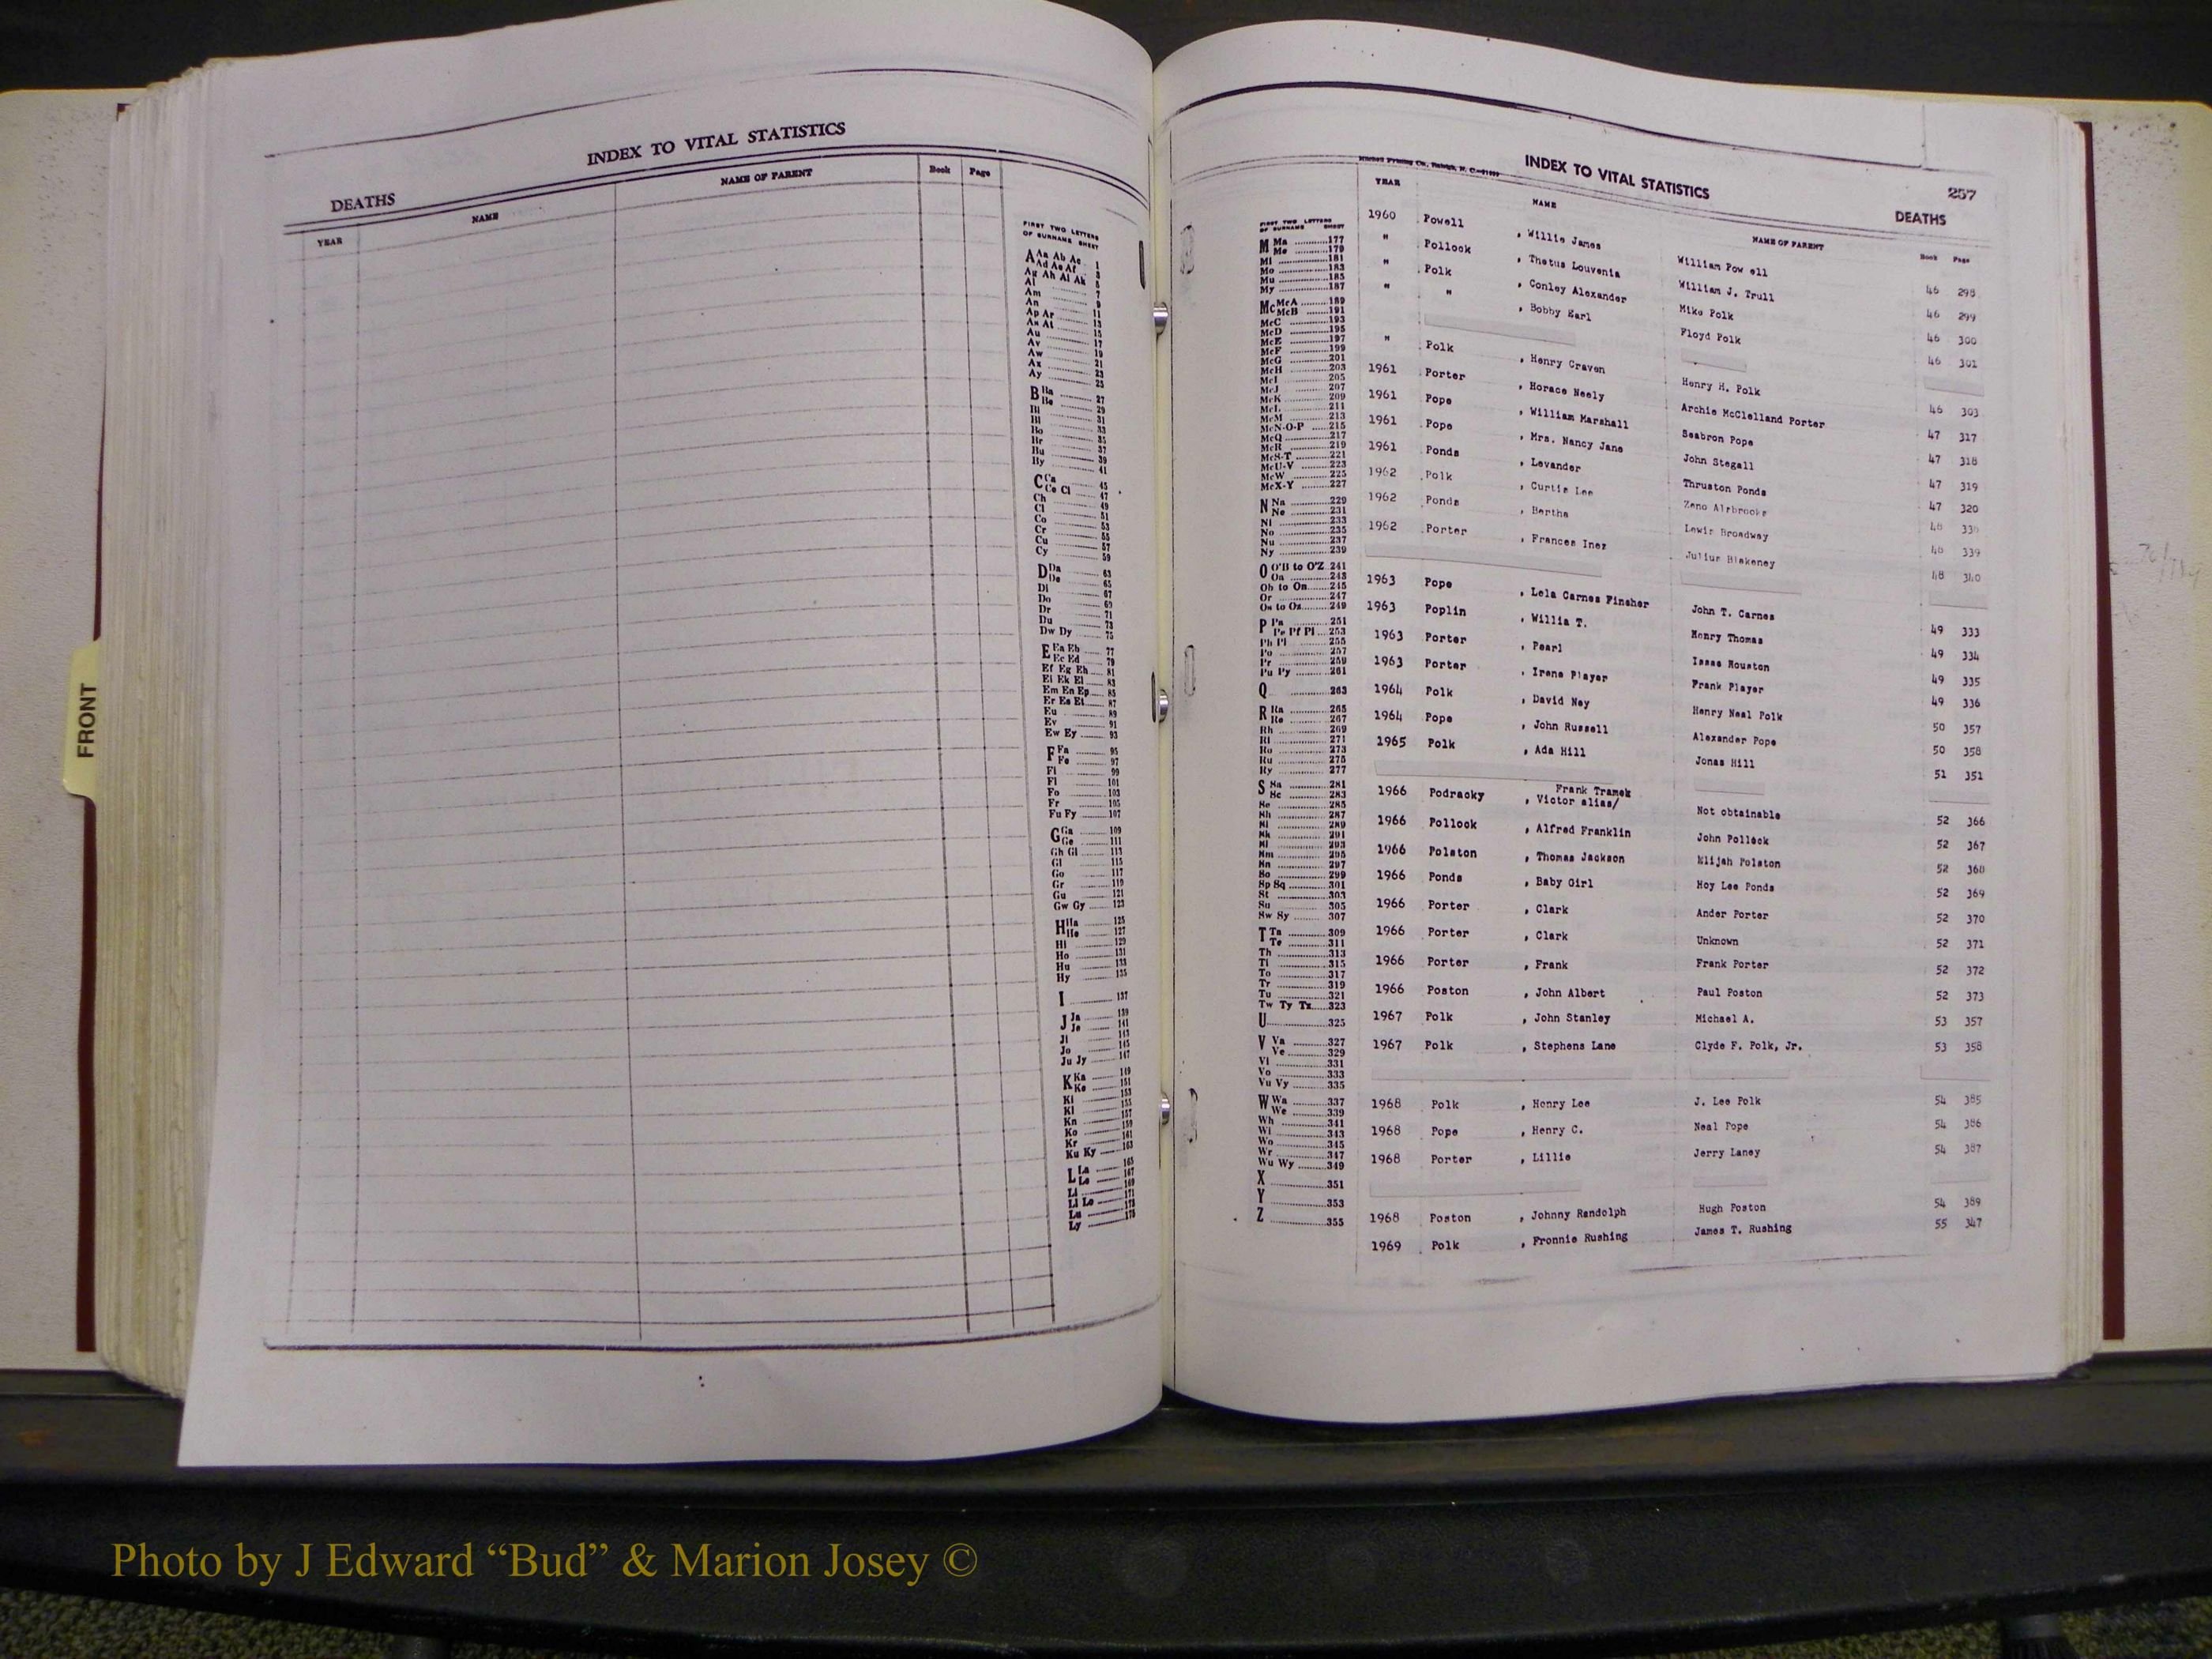 INDEX TO VITAL STATISTICS
DEATHS
YEAR NAME NAME OF PARENT Book Page
FIRST TWO LETTERS
OF SURNAME SHEET
A Aa Ab Ac 1
Ad Ae Af 3
Ag Ah Ai Ak 5
Al 7
Am 9
An 11
Ap Ar 13
As At 15
Au 17
Av 19
Aw 21
Ax 23
Ay 25
B Ba 27
Be 29
Bi 31
Bl 33
Bo 35
Br 37
Bu 39
By 41
C Ca 45
Ce Ci 47
Ch 49
Cl 51
Co 53
Cr 55
Cu 57
Cy 59
D Da 63
De 65
Di 67
Do 69
Dr 71
Du 73
Dw Dy 75
E Ea Eb 77
Ec Ed 79
Ef Eg Eh 81
Ei Ek El 83
Em En Ep 85
Er Es Et 87
Eu 89
Ev 91
Ew Ey 93
F Fa 95
Fe 97
Fi 99
Fl 101
Fo 103
Fr 105
Fu Fy 107
G Ga 109
Ge 111
Gh Gi 113
Gl 115
Go 117
Gr 119
Gu 121
Gw Gy 123
H Ha 125
He 127
Hi 129
Ho 131
Hu 133
Hy 135
I 137
J Ja 139
Je 141
Ji 143
Jo 145
Ju Jy 147
K Ka 149
Ke 151
Ki 153
Kl 155
Kn 157
Ko 159
Kr 161
Ku Ky 163
L La 165
Le 167
Li 169
Ll Lo 171
Lu 173
Ly 175
FRONT
Mitchell Printing Co., Raleigh, N. C.
INDEX TO VITAL STATISTICS
257
DEATHS
YEAR NAME NAME OF PARENT Book Page
FIRST TWO LETTERS
OF SURNAME SHEET
M Ma 177
Me 179
Mi 181
Mo 183
Mu 185
My 187
Mc McA 189
McB 191
McC 193
McD 195
McE 197
McF 199
McG 201
McH 203
McI 205
McJ 207
McK 209
McL 211
McM 213
McN-O-P 215
McQ 217
McR 219
McS-T 221
McU-V 223
McW 225
McX-Y 227
N Na 229
Ne 231
Ni 233
No 235
Nu 237
Ny 239
O O'B to O'Z 241
Oa 243
Ob to On 245
Or 247
Os to Oz 249
P Pa 251
Pe Pf Pi 253
Ph Pl 255
Po 257
Pr 259
Pu Py 261
Q 263
R Ra 265
Re 267
Rh 269
Ri 271
Ro 273
Ru 275
Ry 277
S Sa 281
Sc 283
Se 285
Sh 287
Si 289
Sk 291
Sl 293
Sm 295
Sn 297
So 299
Sp Sq 301
St 303
Su 305
Sw Sy 307
T Ta 309
Te 311
Th 313
Ti 315
To 317
Tr 319
Tu 321
Tw Ty Tz 323
U 325
V Va 327
Ve 329
Vi 331
Vo 333
Vu Vy 335
W Wa 337
We 339
Wh 341
Wi 343
Wo 345
Wr 347
Wu Wy 349
X 351
Y 353
Z 355
1960 Powell , Willie James William Pow ell 46 298
" Pollock , Thetus Louvenia William J. Trull 46 299
" Polk , Conley Alexander Mike Polk 46 300
" " , Bobby Earl Floyd Polk 46 301
" Polk , Henry Craven Henry H. Polk 46 303
1961 Porter , Horace Neely Archie McClelland Porter 47 317
1961 Pope , William Marshall Seabron Pope 47 318
1961 Pope , Mrs. Nancy Jane John Stegall 47 319
1961 Ponds , Levander Thruston Ponds 47 320
1962 Polk , Curtis Lee Zeno Alrbrooks
1962 Ponds , Bertha Lewis Broadway 339
1962 Porter , Frances Inez Julius Blakeney 48 340
1963 Pope , Lela Carnes Fincher John T. Carnes 49 333
1963 Poplin , Willia T. Henry Thomas 49 334
1963 Porter , Pearl Isaac Houston 49 335
1963 Porter , Irene Player Frank Player 49 336
1964 Polk , David Ney Henry Neal Polk 50 357
1964 Pope , John Russell Alexander Pope 50 358
1965 Polk , Ada Hill Jonas Hill 51 351
Frank Tramek
1966 Podracky , Victor alias/ Not obtainable 52 366
1966 Pollock , Alfred Franklin John Pollock 52 367
1966 Polston , Thomas Jackson Elijah Polston 52 368
1966 Ponds , Baby Girl Hoy Lee Ponds 52 369
1966 Porter , Clark Ander Porter 52 370
1966 Porter , Clark Unknown 52 371
1966 Porter , Frank Frank Porter 52 372
1966 Poston , John Albert Paul Poston 52 373
1967 Polk , John Stanley Michael A. 53 357
1967 Polk , Stephens Lane Clyde F. Polk, Jr. 53 358
1968 Polk , Henry Lee J. Lee Polk 54 385
1968 Pope , Henry C. Neal Pope 54 386
1968 Porter , Lillie Jerry Laney 54 387
1968 Poston , Johnny Randolph Hugh Poston 54 389
1969 Polk , Fronnie Rushing James T. Rushing 55 347
Photo by J Edward “Bud” & Marion Josey ©